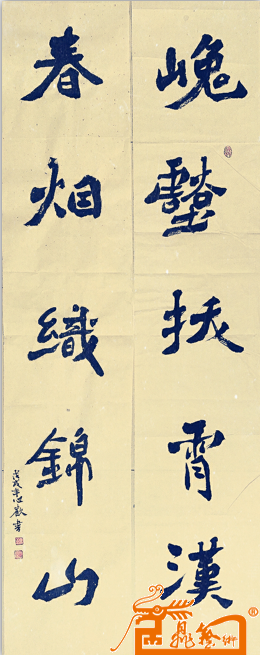 晚壑扶霄漢
春烟織錦山
戊戌年